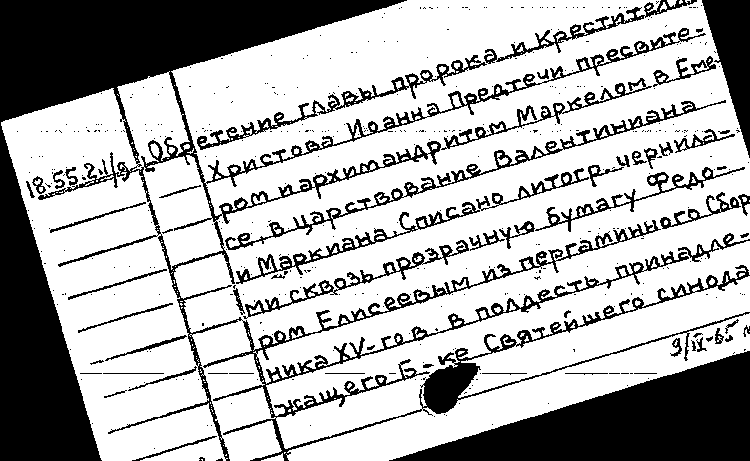 18.55.2.1/9 Обретение главы пророка и Крестителя
Христова Иоанна Предтечи пресвите-
ром и архимандритом Маркелом в Еме-
се, в царствование Валентиниана
и Маркиана. Списано литогр. чернила-
ми сквозь прозрачную бумагу Федо-
ром Елисеевым из пергаминного Сбор
ника XV-го в. в полдесть, принадле-
жащего Б-ке Святейшего синода
9/IV-65